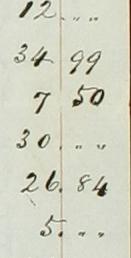 12. " "
34 99
7 50
30. " "
26. 84
5. " "